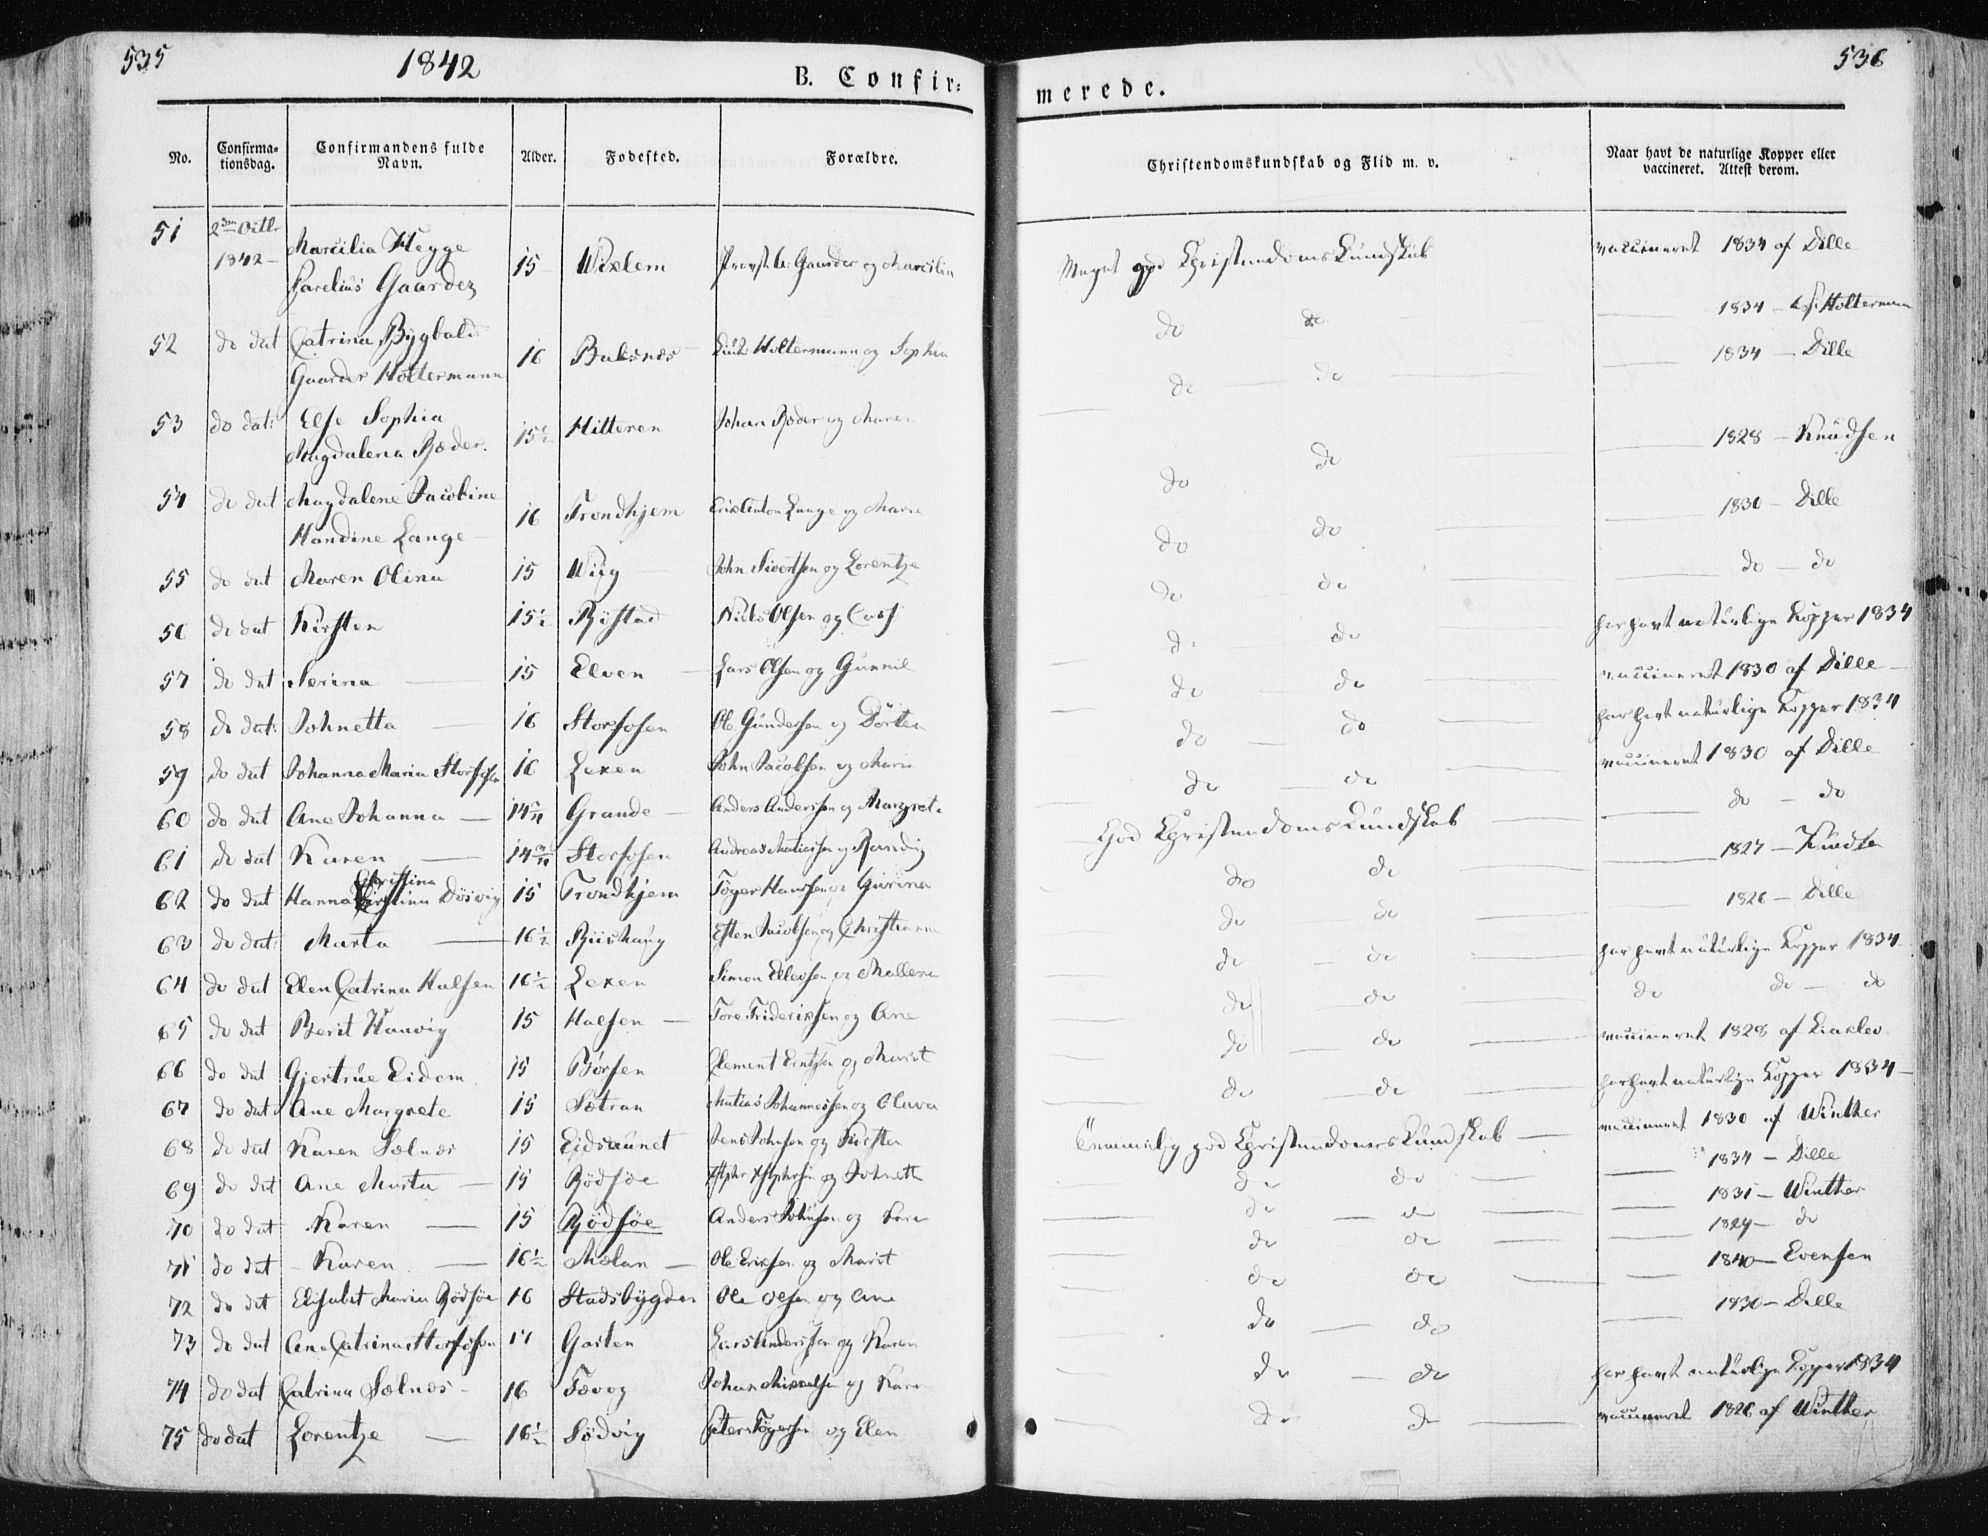 535
1842
B. Confir=
merede.
536
No.
Confirma-
tionsdag.
Confirmandens fulde
Navn.
Alder.
Fødested.
Forældre.
Christendomskundskab og Flid m. v.
Naar havt de naturlige Kopper eller
vaccineret. Attest derom.
51 2den Octbr 1842 Marcilia Hegge
Parelius Gaarder 15 Wixlem Provst Gaarder og Marcilia Meget god Christendoms Kundskab vaccineret 1834 af Dille
52 do dat Catrina Bygbald
Gaarder Holtermann 16 Baksnes Holtermann og Sophia do do 1834 Holtermann
53 do dat: Else Sophia
Magdalena Røder. 15½ Hitteren Johan Røder og Maren do do 1834 — Dille
54 do dat Magdalene Jacobine
Handine Lange 16 Trondhjem Erik Anton Lange og Marie do do 1828 — Knudsen
55 do dat Maren Olina 15 Wiig John Sivertsen og Lorentze do do 1830 — Dille
56 do dat Kirsten 15½ Røstad Niels Olsen og do do do — do
57 do dat Serina 15 Elven Lars Olsen og Gunnil do do har havt naturlige Kopper 1834
58 do dat: Johnetta 16 Storfosen Ole Gundersen og Dorte do do vaccineret 1830 af Dille
59 do dat Johanna Maria Storfosen 16 Lexen John Jacobsen og Marie do do har havt naturlige Kopper 1834
60 do dat Ane Johanna 14 Grande Anders Andersen og Margrete do do vaccineret 1830 af Dille
61 do dat Karen 14 Storfosen Andreas Matiassen og Randig God Christendoms Kundskab do — do
62 do dat Hanna Christina Døsvig 15 Trondhjem Tøger Hansen og Gurina do do 1827 — Knudsen
63 do dat: Marta 16½ Riishaug Esten Jacobsen og Christianna do do 1826 — Dille
64 do dat Elen Catrina Halsen 16½ Lexen Simon Ellevsen og Mallena do do har havt naturlige Kopper 1834
65 do dat Berit Hauvig 15 Halsen Tore Frideriksen og Ane do do do do — do
66 do dat Gjertrue Eidem 15 Børsen Clement Erntsen og Marit do do vaccineret 1828 af
67 do dat Ane Margrete 15 Sætran Matias Johannessen og Oliva do do har havt naturlige Kopper 1834
68 do dat Karen Sølnes 15 Eidsaunet Jens Johnsen og Kirsten Temmelig god Christendoms Kundskab vaccineret 1830 af Winther
69 do dat Ane Marta 15 Rødsøe og Johnetta do do 1834 — Dille
70 do dat Karen 15 Rødsøe Anders Johnsen og Karen do do 1831 — Winther
71 do dat Karen 16½ Mælan Ole Eriksen og Marit do do 1829 — do
72 do dat Elisabet Maria Rødsøe 16 Stadsbygden Ole Olsen og Ane do do 1840 — Evensen
73 do dat Ane Catrina Storfosen 17 Garten Lars Anderssen og Karen do do 1830 — Dille
74 do dat Catrina Sølnes 16 Tøvog Johan Mikkelsen og Karen do do har havt naturlige Kopper 1834
75 do dat Lorentze 16½ Sødvig Peter Tøgersen og Elen do do vaccineret 1826 af Winther